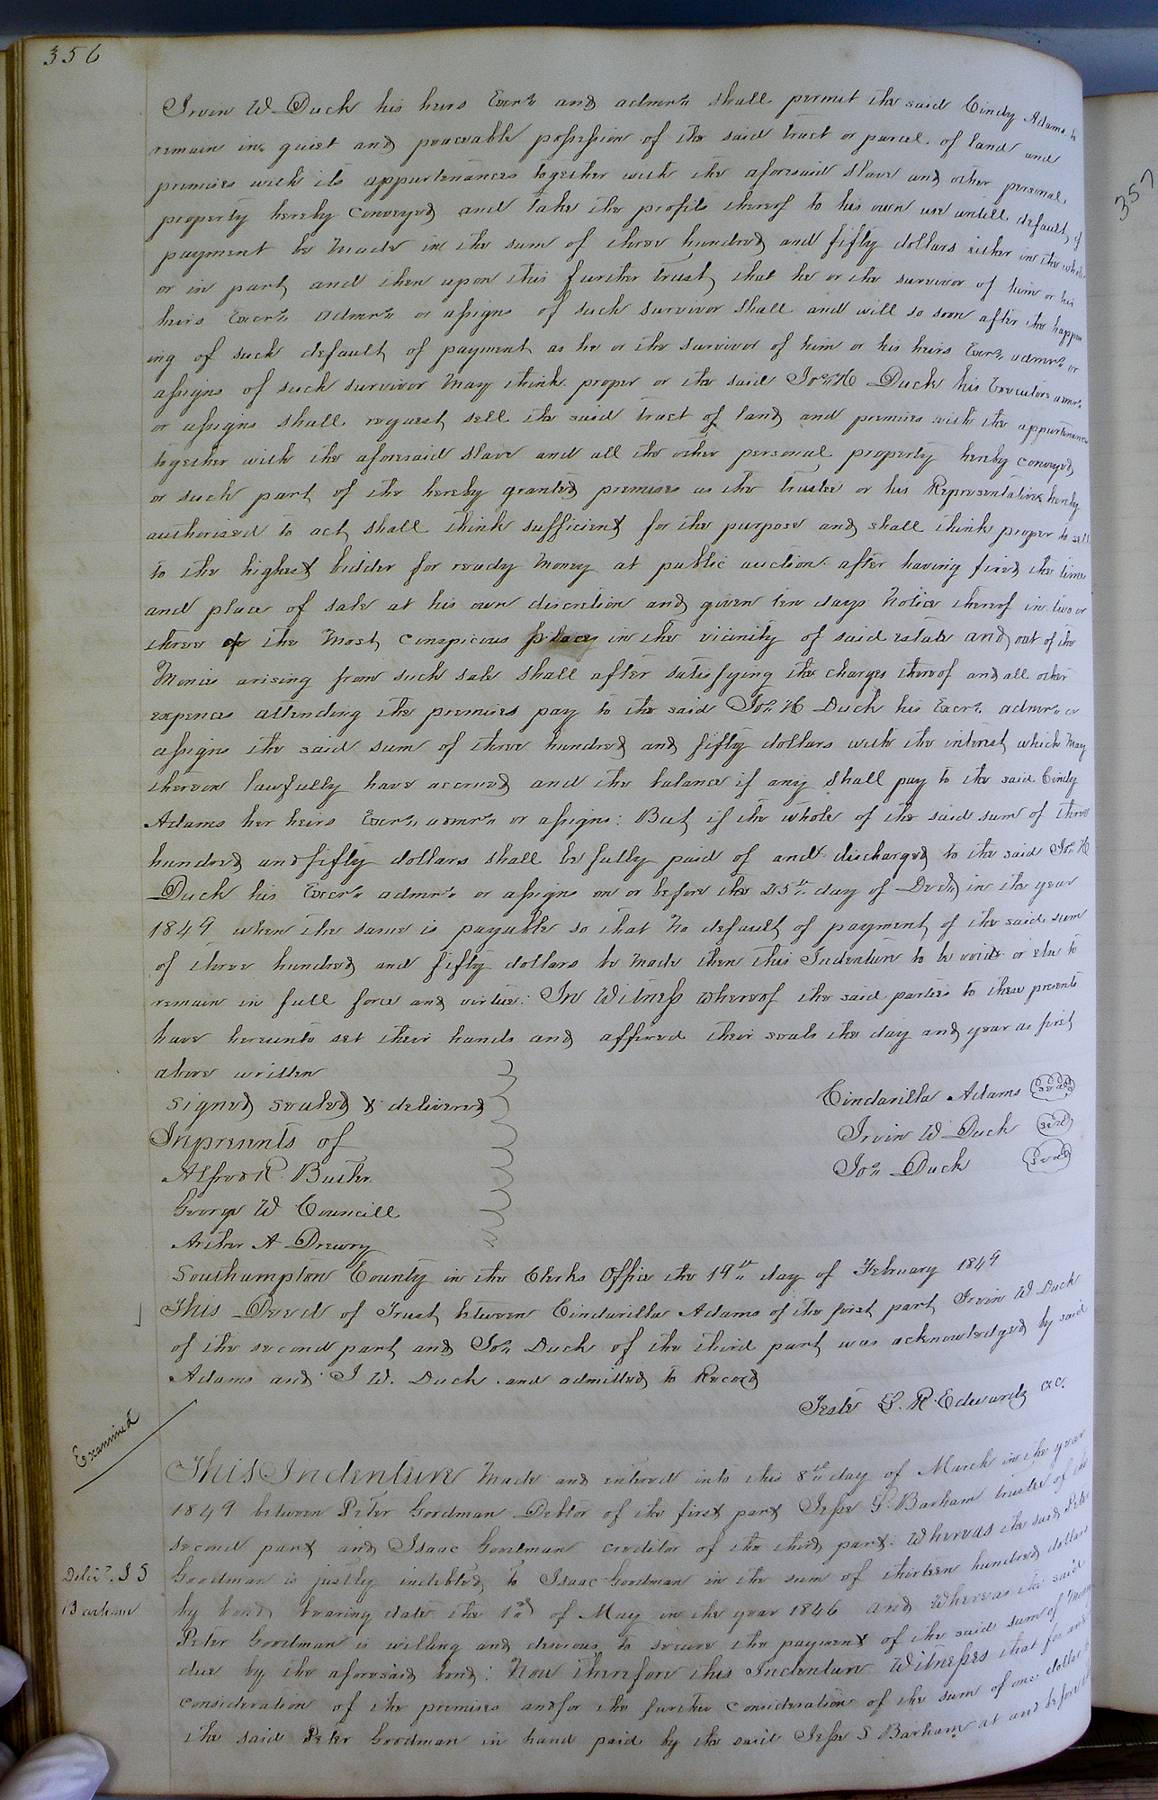 356
Irvin W Duck his heirs Exors and admrs shall permit the said Cindy Adams to
remain in quiet and peaceable possession of the said tract or parcel of land and
premises with its appurtenances together with the aforesaid slave and other personal
property hereby conveyed and take the profits thereof to his own use untill default of
payment be made in the sum of three hundred and fifty dollars either in the whole
or in part and then upon this further trust that he or the survivor of him or his
heirs Exors Admrs or assigns of such survivor shall and will so soon after the happen
ing of such default of payment as he or the survivor of him or his heirs Exors admrs or
assigns of such survivor may think proper or the said Jos H Duck his Executors admrs
or assigns shall request sell the said tract of land and premises with the appurtenances
together with the aforesaid slave and all the other personal property hereby conveyed
or such part of the hereby granted premises as the trustee or his Representatives hereby
authorised to act shall think sufficient for the purpose and shall think proper to sell
to the highest bidder for ready money at public auction after having fixed the time
and place of sale at his own discretion and given ten days Notice thereof in two or
three of the most conspicious places in the vicinity of said estate and out of the
Monies arising from such sale shall after satisfying the charges thereof and all other
expences attending the premises pay to the said Jos H Duck his Exors admrs or
assigns the said sum of three hundred and fifty dollars with the interest which may
thereon lawfully have accrued and the balance if any shall pay to the said Cindy
Adams her heirs Exors, admrs or assigns: But if the whole of the said sum of three
hundred and fifty dollars shall be fully paid of and discharged to the said Jos H
Duck his Exors admrs or assigns on or before the 25th day of Decr in the year
1849 when the same is payable so that no default of payment of the said sum
of three hundred and fifty dollars be made then this Indenture to be void or else to
remain in full force and virtue: In Witness whereof the said parties to these presents
have hereunto set their hands and affixed their seals the day and year as first
above written
Signed sealed & delivered
Inpresents of
Alfred R. Butler
George W Councill
Arthur A Drewry
Cindarilla Adams seal
Irvin W Duck seal
Jos Duck seal
Southampton County in the Clerks Office the 19th day of February 1849
This Deed of Trust between Cindarilla Adams of the first part Irvin W Duck
of the second part and Jos Duck of the third part was acknowledged by said
Adams and I W. Duck and admitted to Record
Teste L. R. Edwards cc.
Examined
This Indenture Made and entered into this 8th day of March in the year
1849 between Peter Goodman Debtor of the first part Jesse S Barham trustee of the
second part and Isaac Goodman creditor of the third part. Whereas the said Peter
Goodman is justly indebted to Isaac Goodman in the sum of thirteen hundred dollars
by bond bearing date the 1st of May in the year 1846 and whereas the said
Peter Goodman is willing and desirous to secure the payment of the said sum of money
due by the aforesaid bond: Now therefore this Indenture Witnesses that for and
consideration of the premises and for the further consideration of the sum of one dollar to
the said Peter Goodman in hand paid by the said Jesse S Barham at and before
Delivd. J S
Barham
357